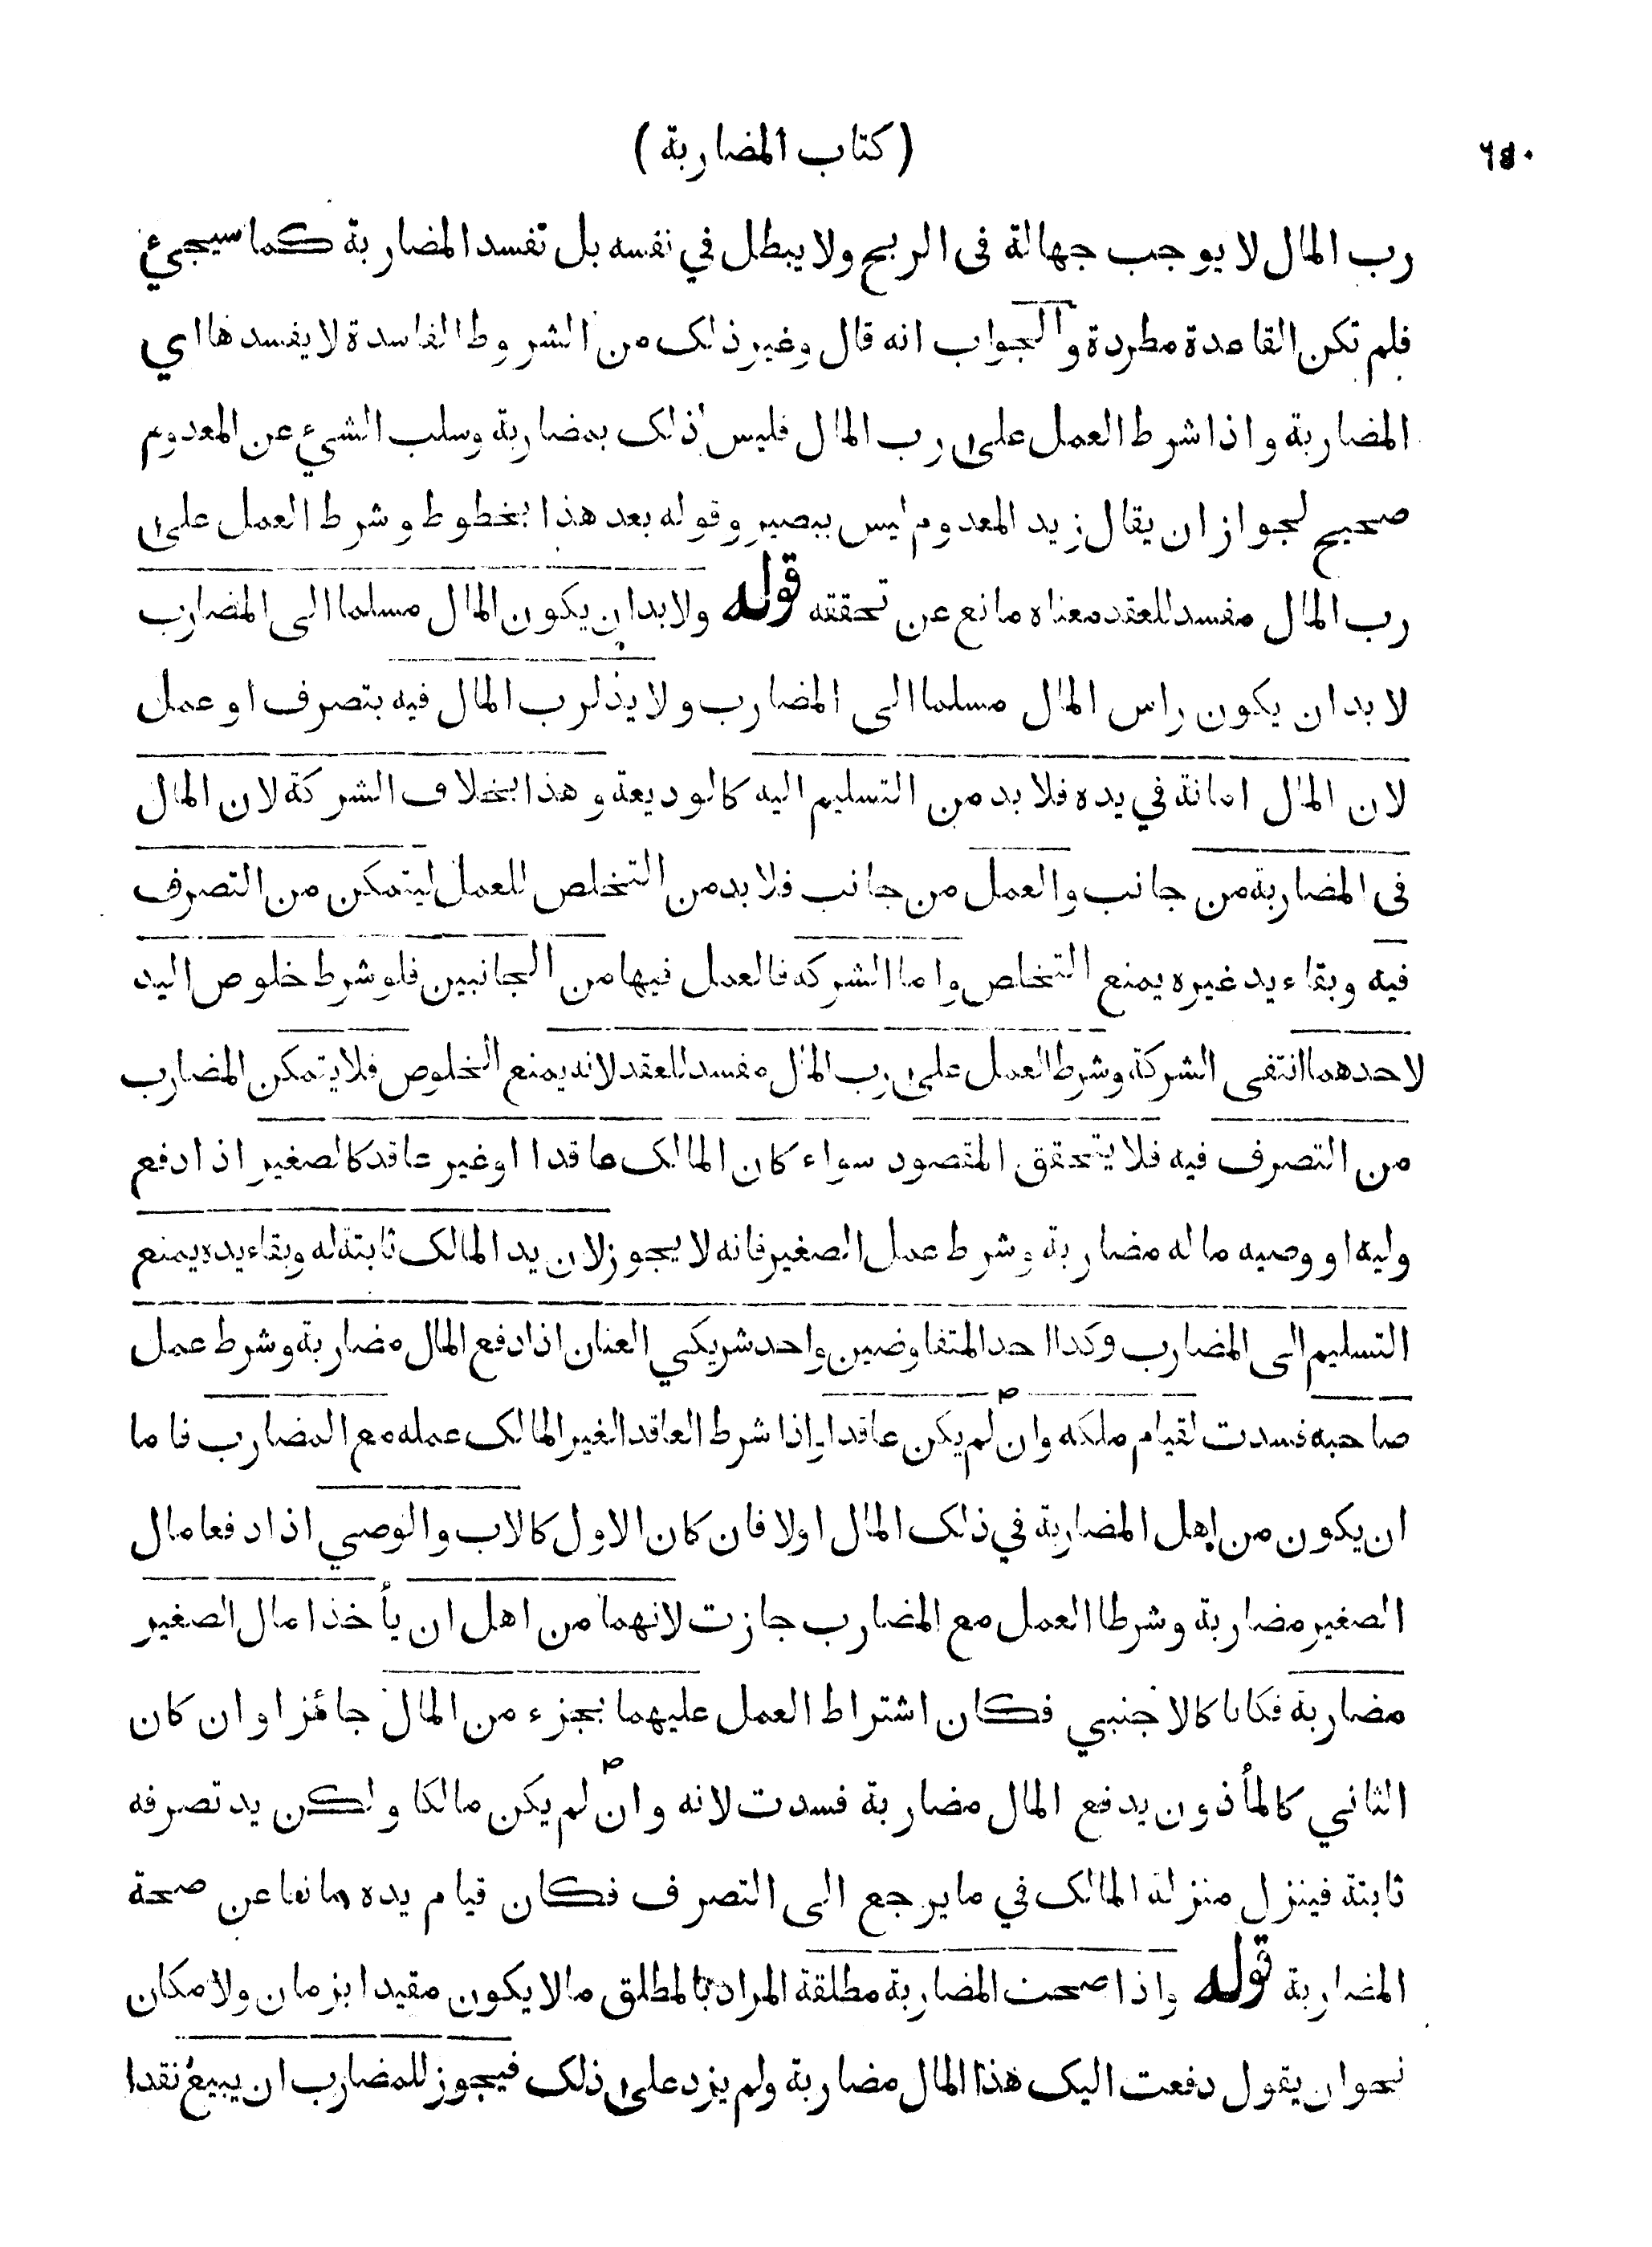 (كتاب المضاربة) ٦٤٠
رب المال لا يوجب جهالة فى الربح ولا يبطل في نفسه بل تفسد المضاربة كما سيجيء
فلم تكن القاعدة مطردة والجواب انه قال وغير ذلك من الشروط الفاسدة لا يفسدها اي
المضاربة واذا شرط العمل على رب المال فليس ذلك بمضاربة وسلب الشيء عن المعدوم
صحيح لجواز ان يقال زيد المعدوم ليس ببصير وقوله بعد هذا بخطوط وشرط العمل على
رب المال مفسد للعقد معناه مانع عن تحققه قوله ولا بد ان يكون المال مسلما الى المضارب
لا بد ان يكون راس المال مسلما الى المضارب ولا يد لرب المال فيه بتصرف او عمل
لان المال امانة في يده فلا بد من التسليم اليه كالوديعة وهذا بخلاف الشركة لان المال
فى المضاربة من جانب والعمل من جانب فلا بد من التخلص للعمل ليتمكن من التصرف
فيه وبقاء يد غيره يمنع التخلص واما الشركه فالعمل فيها من الجانبين فلو شرط خلوص اليد
لاحدهما انتفى الشركة وشرط العمل على رب المال مفسد للعقد لانه يمنع الخلوص فلا يتمكن المضارب
من التصرف فيه فلا يتحقق المقصود سواء كان المالك عاقدا او غير عاقد كالصغير اذا دفع
وليه او وصيه ماله مضاربة وشرط عمل الصغير فانه لا يجوز لان يد المالك ثابتة له وبقاء يده يمنع
التسليم الى المضارب وكذا احد المتفاوضين واحد شريكي العنان اذا دفع المال مضاربة وشرط عمل
صاحبه فسدت لقيام ملكه وان لم يكن عاقدا واذا شرط العاقد الغير المالك عمله مع المضارب فاما
ان يكون من اهل المضاربة في ذلك المال اولا فان كان الاول كالاب والوصي اذا دفعا مال
الصغير مضاربة وشرطا العمل مع المضارب جازت لانهما من اهل ان يأخذا مال الصغير
مضاربة فكانا كالاجنبي فكان اشتراط العمل عليهما بجزء من المال جائزا وان كان
الثاني كالمأذون يدفع المال مضاربة فسدت لانه وان لم يكن مالكا ولكن يد تصرفه
ثابتة فينزل منزلة المالك في ما يرجع الى التصرف فكان قيام يده مانعا عن صحة
المضاربة قوله واذا صحت المضاربة مطلقة المراد بالمطلق ما لا يكون مقيدا بزمان ولا مكان
نحو ان يقول دفعت اليك هذا المال مضاربة ولم يزد على ذلك فيجوز للمضارب ان يبيع نقدا